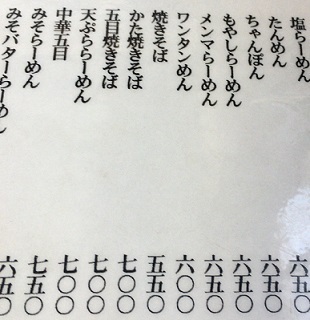 塩らーめん
たんめん
ちゃんぽん
もやしらーめん
メンマらーめん
ワンタンめん
焼きそば
かた焼きそば
五目焼きそば
天ぷららーめん
中華五目
みそらーめん
みそバターらーめん
六五〇
六五〇
六五〇
六五〇
六〇〇
五五〇
七〇〇
七〇〇
七〇〇
七五〇
六五〇